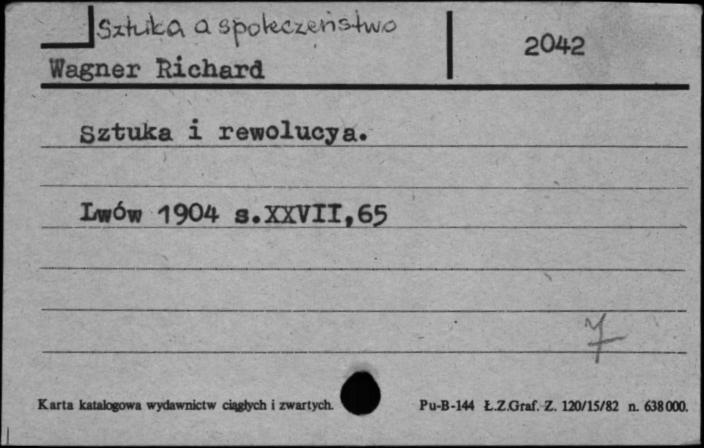 Sztuka a społeczeństwo
2042
Wagner Richard
Sztuka i rewolucya.
Lwów 1904 s.XXVII,65
7
Karta katalogowa wydawnictw ciągłych i zwartych.
Pu-B-144 Ł.Z.Graf. Z. 120/15/82 n. 638000.